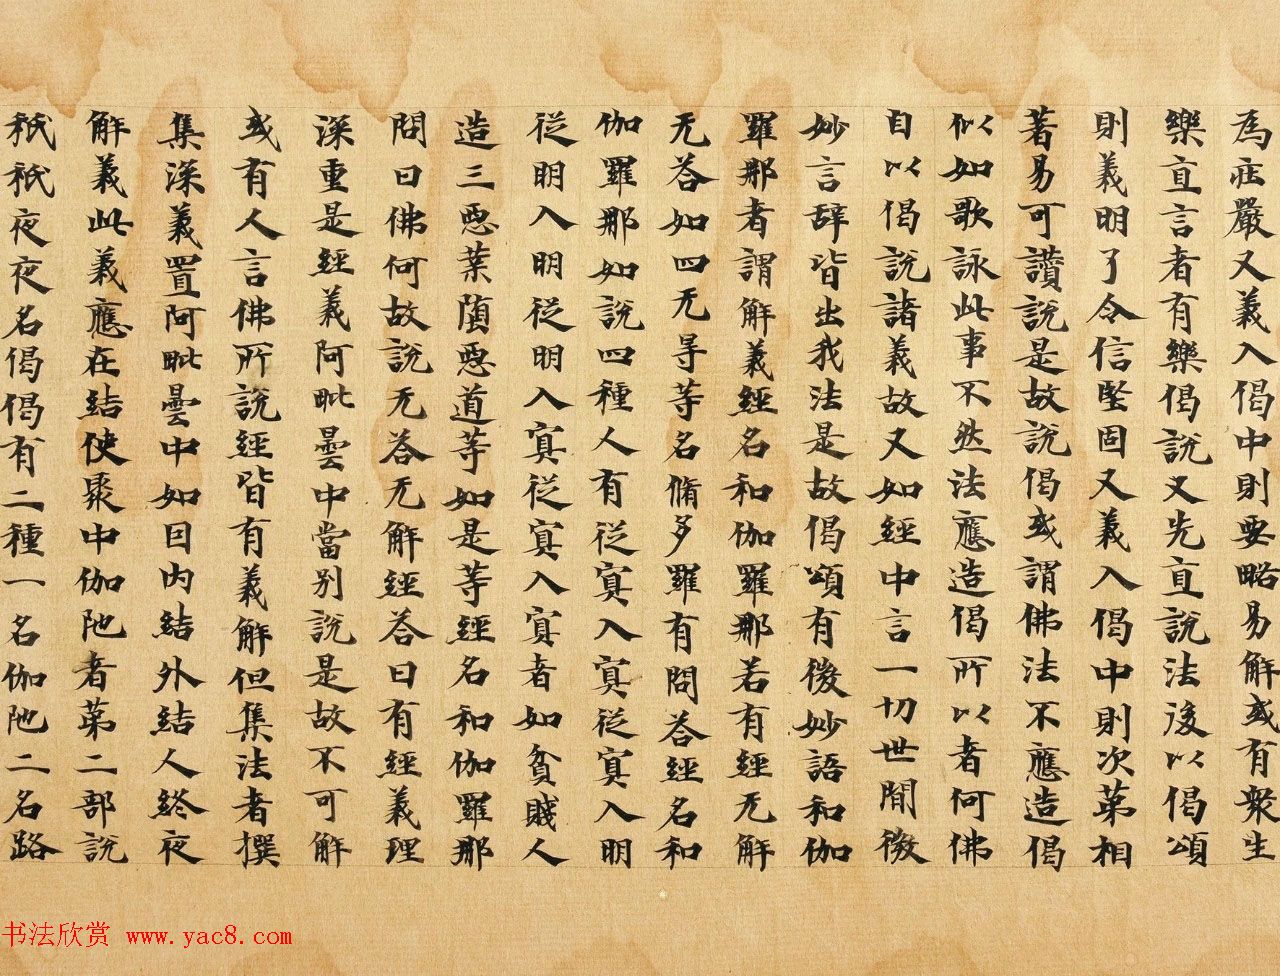 為庄嚴又義入偈中則要略易解或有衆生
樂直言者有樂偈說又先直說法後以偈頌
則義明了令信堅固又義入偈中則次第相
著易可讚說是故說偈或謂佛法不應造偈
似如歌詠此事不然法應造偈所以者何佛
自以偈說諸義故又如經中言一切世間微
妙言辞皆出我法是故偈頌有後妙語和伽
羅那者謂解義經名和伽羅那若有經无解
无荅如四无㝵等名脩多羅有問荅經名和
伽羅那如說四種人有從冥入冥從冥入明
從明入明從明入冥從冥入冥者如貧賤人
造三惡業墮惡道等如是等經名和伽羅那
問曰佛何故說无荅无解經荅曰有經義理
深重是經義阿毗曇中當別說是故不可解
或有人言佛所說經皆有義解但集法者撰
集深義置阿毗曇中如因内結外結人終夜
解義此義應在結使聚中伽陁者第二部說
祇祇夜夜名偈偈有二種一名伽陁二名路
书法欣赏 www.yac8.com